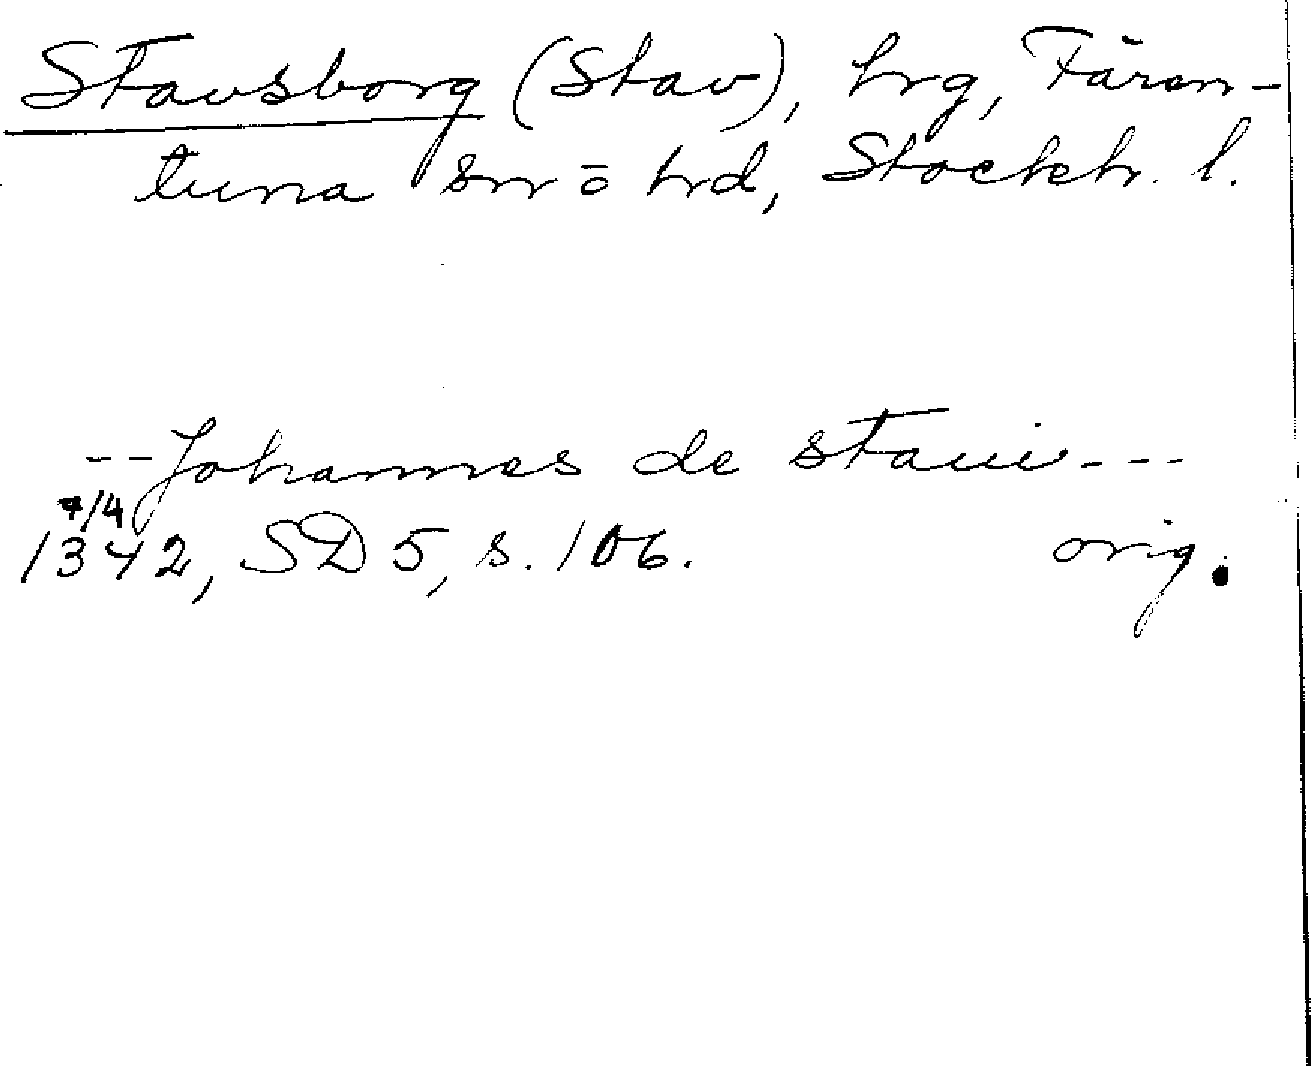 Stavsborg (Stav), hrg, Fären-
tuna sn o hrd, Stockh. l.
-- Johannes de staui ---
7/4
1342, SD 5, s. 106. orig.